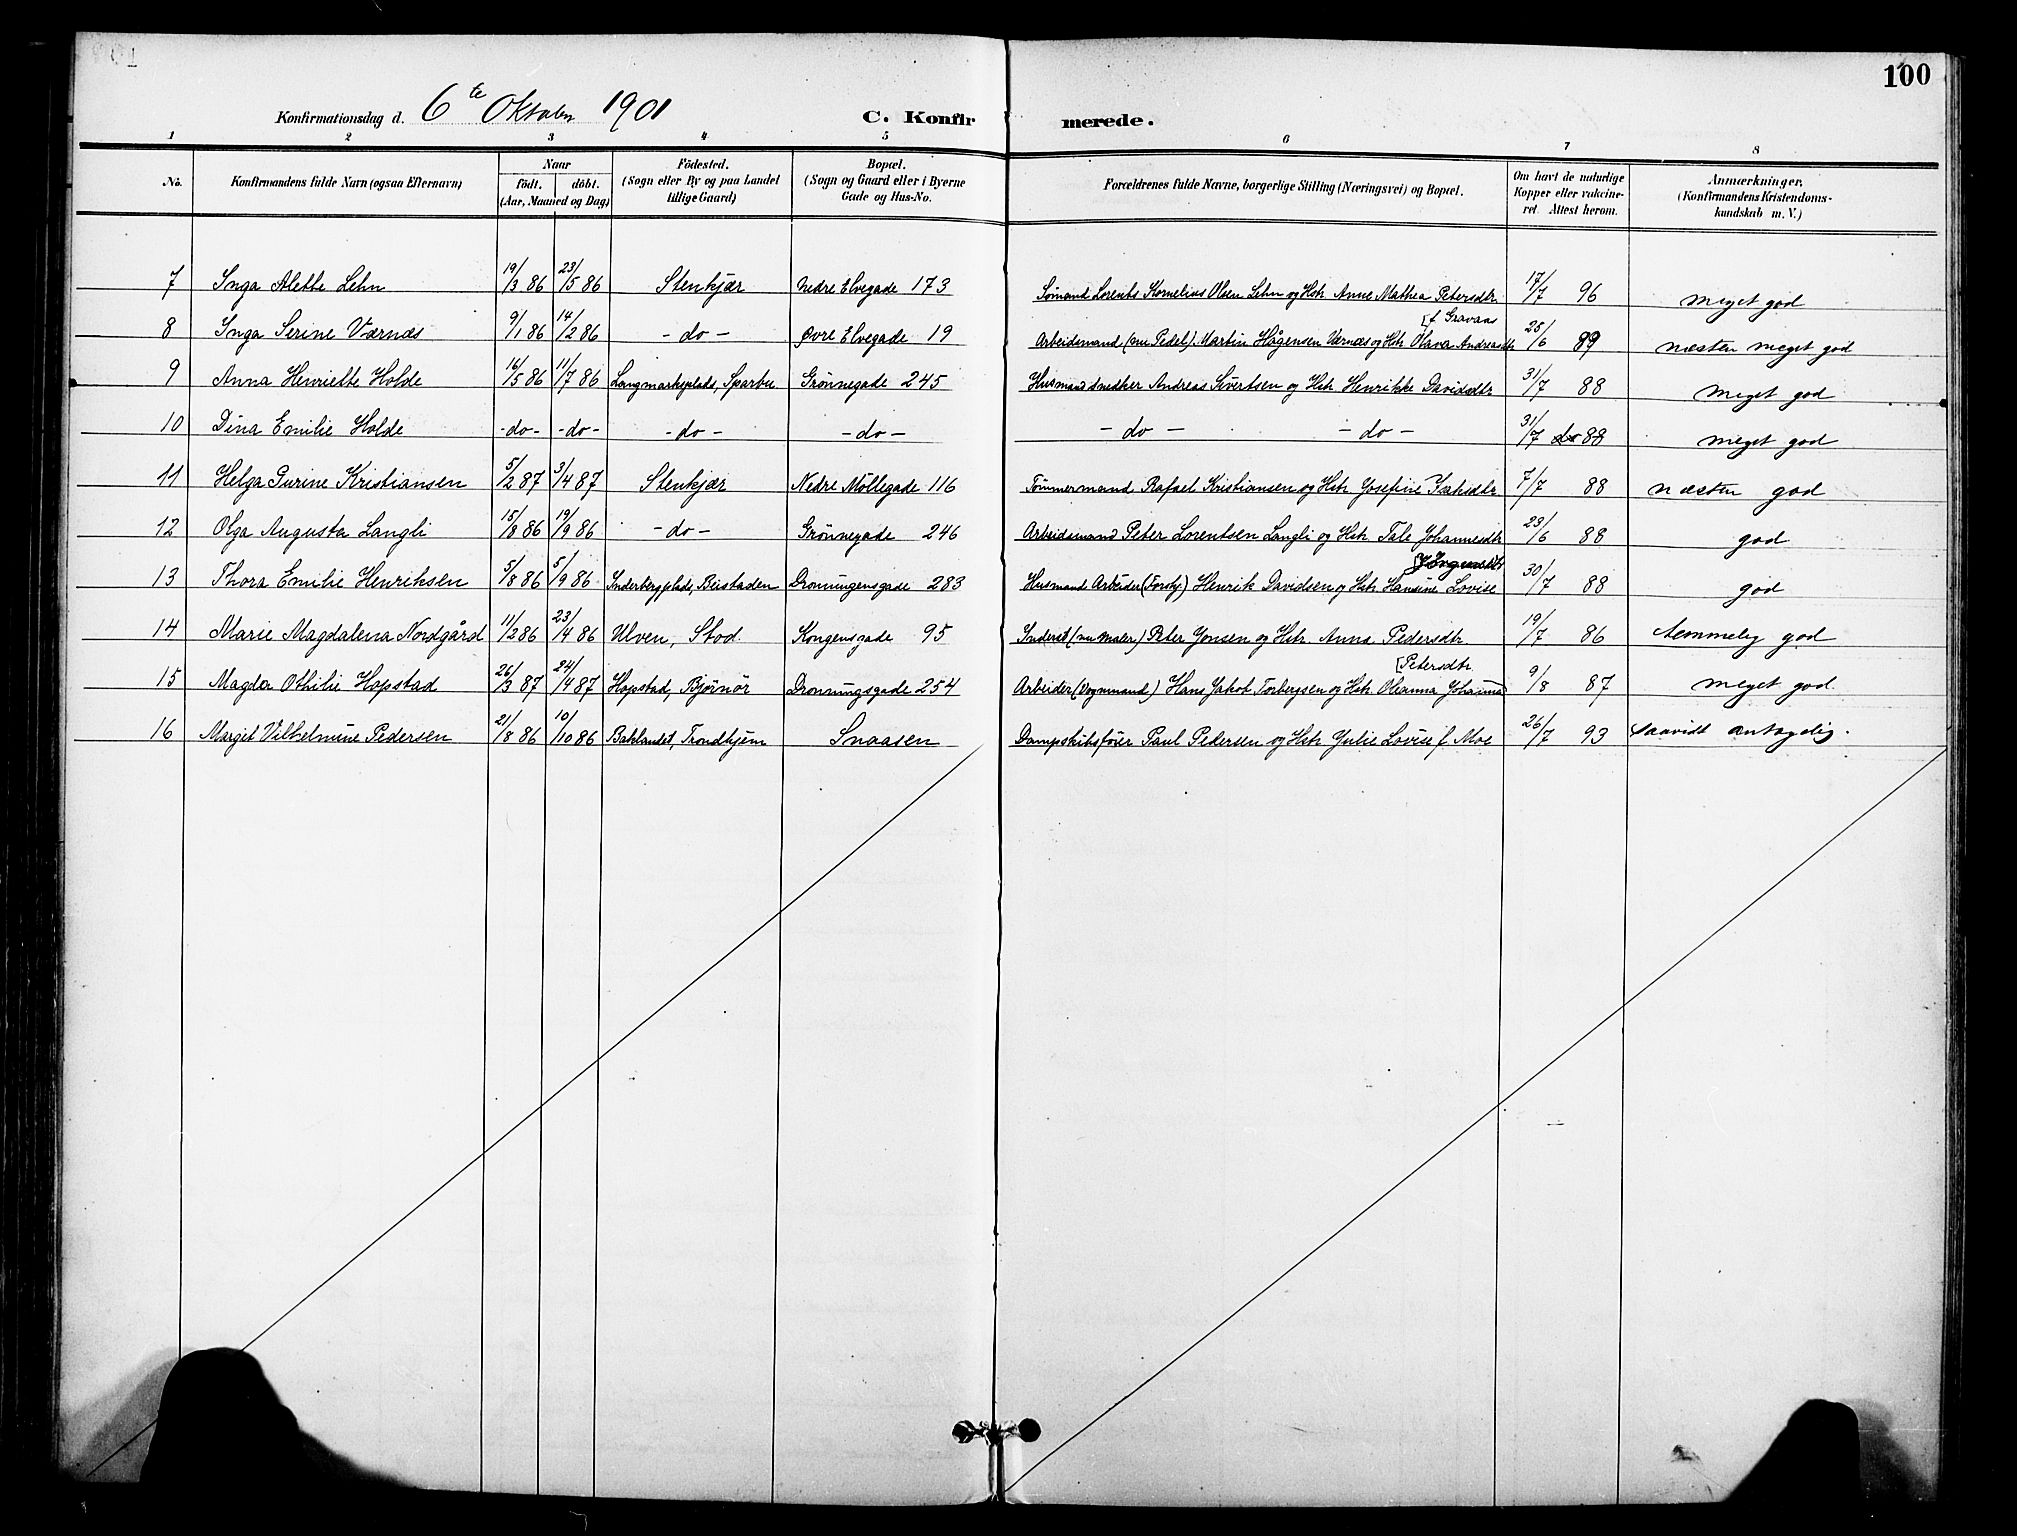 100
Konfirmationsdag d. 6te Oktober 1901 C. Konfirmerede.
1 2 3 4 5 6 7 8
No. | Konfirmandens fulde Navn (ogsaa Efternavn) | Naar födt. döbt. (Aar, Maaned og Dag) | Födested. (Sogn eller By og paa Landet tillige Gaard) | Bopæl. (Sogn og Gaard eller i Byerne Gade og Hus-No. | Forældrenes fulde Navne, borgerlige Stilling (Næringsvei) og Bopæl. | Om havt de naturlige Kopper eller vakcineret. Attest herom. | Anmærkninger. (Konfirmandens Kristendomskundskab m. V.)
7 Inga Alette Lehn 19/3 86 23/5 86 Stenkjær Nedre Elvegade 173 Sømand Lorents Kornelius Olsen Lehn og Hstr Anne Mathea Petersdtr 17/7 96 meget god
8 Inga Serine Værnæs 9/1 86 14/2 86 - do - Øvre Elvegade 19 Arbeidsmand (nu Pedel) Martin Hågensen Værnæs og Hstr Olava Andreasdtr [f. Gravaas 25/6 89 næsten meget god
9 Anna Henriette Holde 16/5 86 11/7 86 Langmarksplads, Sparbu Grønnegade 245 Husmand Snedker Andreas Sivertsen og Hstr Henrikke Davidsdtr 31/7 88 meget god
10 Dina Emilie Holde - do - - do - - do - - do - - do - - do - 31/7 88 meget god
11 Helga Gurine Kristiansen 5/2 87 3/4 87 Stenkjær Nedre Möllegade 116 Tömmermand Rafael Kristiansen og Hstr Josefine Isaksdtr 7/7 88 næsten god
12 Olga Augusta Langli 15/8 86 19/9 86 - do - Grønnegade 246 Arbeidsmand Peter Lorentsen Langli og Hstr Tale Johannesdtr 23/6 88 god
13 Thora Emilie Henriksen 5/8 86 5/9 86 Inderbergplads, Beistaden Dronningensgade 283 Husmand Arbeider Henrik Davidsen og Hstr Hansine Lovise [Jörgensdtr 30/7 88 god
14 Marie Magdalena Nordgård 11/2 86 23/4 86 Ulven, Stod. Kongensgade 95 Inderst (nu Maler) Peter Jonsen og Hstr Anna Pedersdtr 19/7 86 temmelig god
15 Magda Othilie Hopstad 26/3 87 24/4 87 Hopstad, Bjørnör Dronningsgade 254 Arbeider (Vognmand) Hans Jakob Torbergsen og Hstr Oleanna Johanna [Petersdtr 9/8 87 meget god.
16 Margit Vilhelmine Pedersen 21/8 86 10/10 86 Baklandet, Trondhjem Snaasen Dampskibsfører Paul Pedersen og Hstr Julie Lovise f Moe 26/7 93 saavidt antagelig.